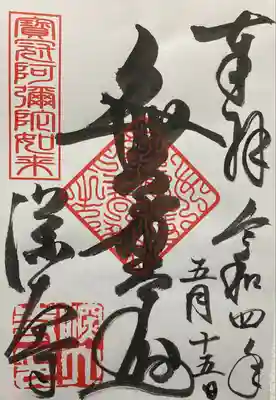 奉拝
令和四年
五月十五日
無量壽
寶冠阿彌陀如来
深大寺